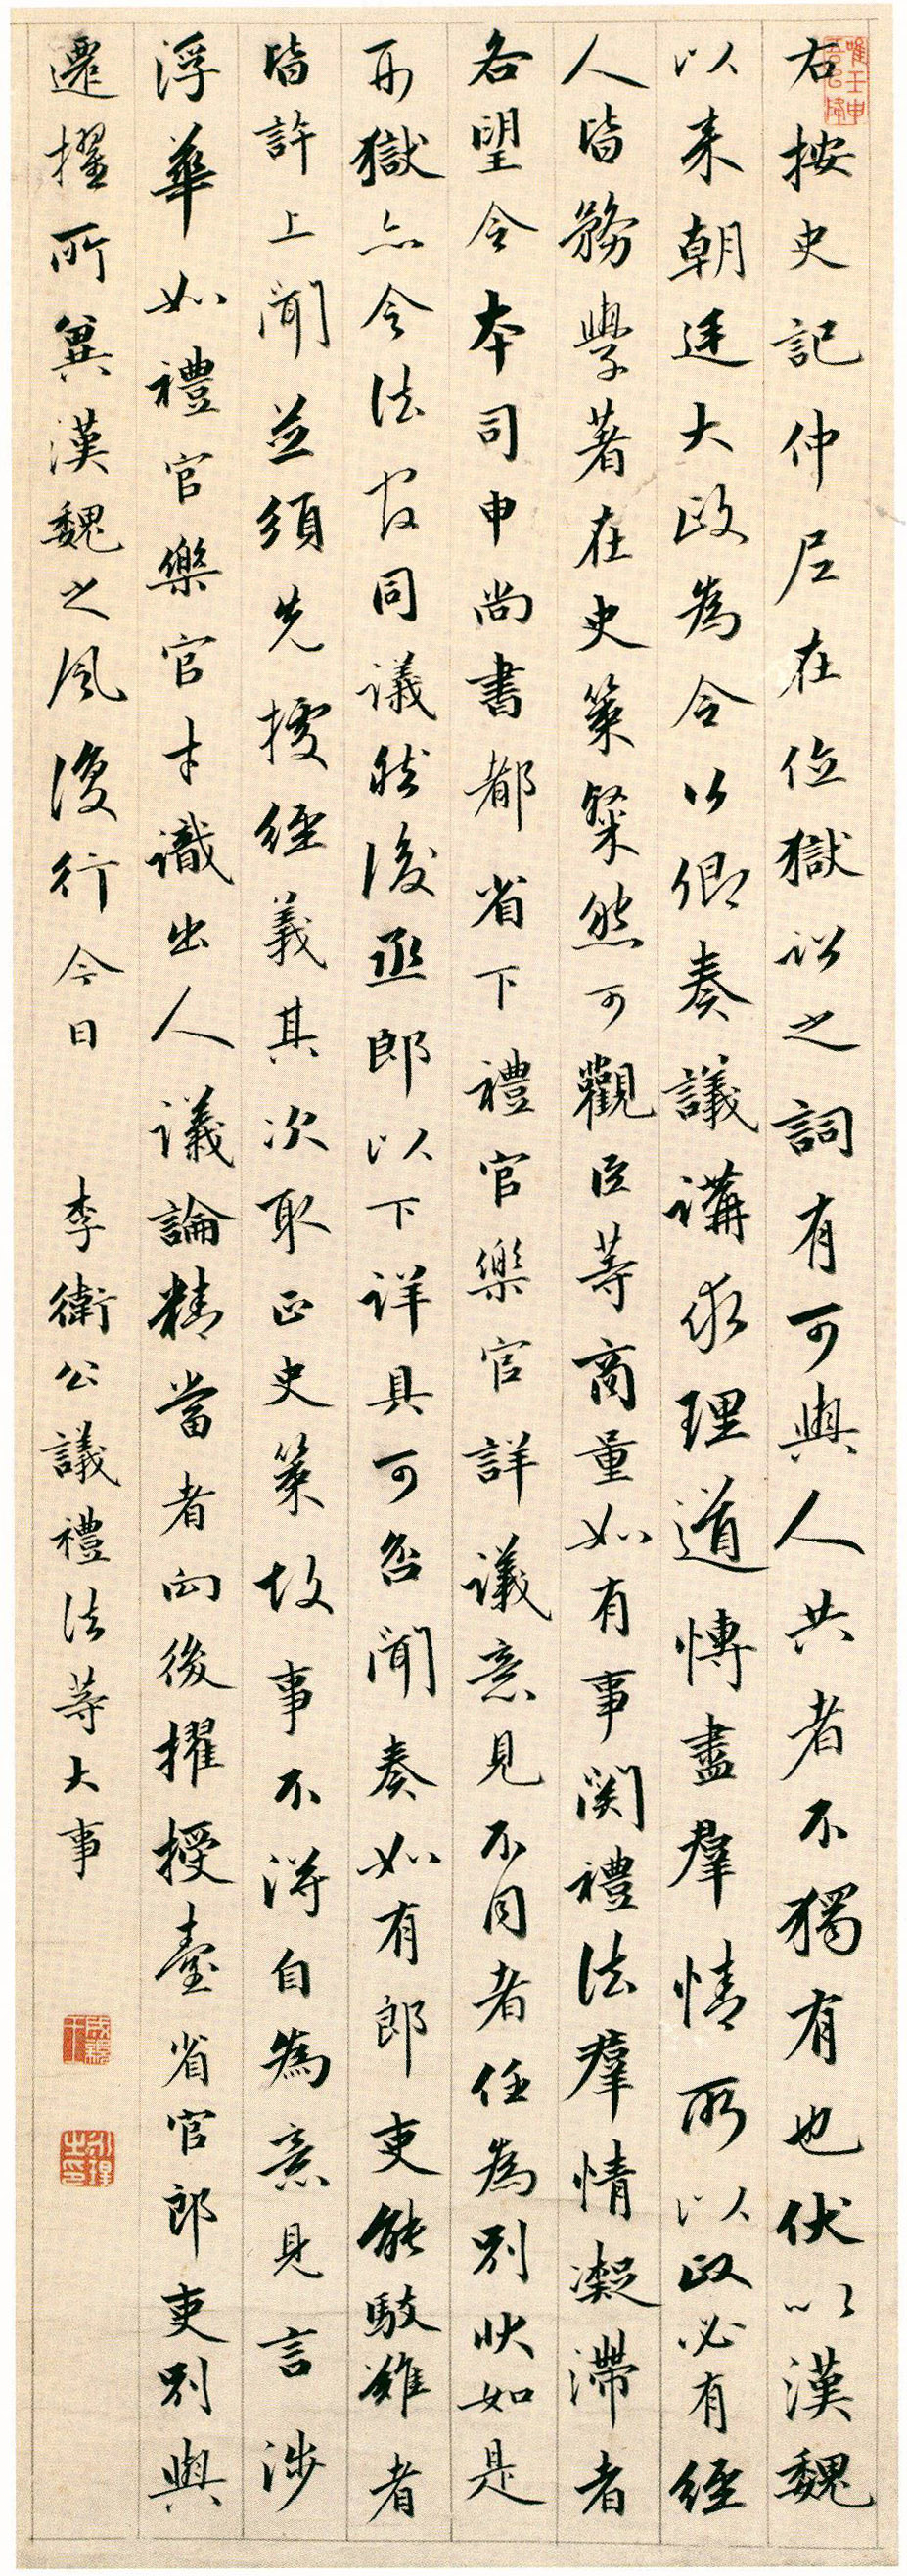 唯壬申吾以降
右按史記仲尼在位獄訟之詞有可與人共者不獨有也伏以漢魏
以来朝廷大政為令公卿奏議講求理道博盡羣情所以政必有經
人皆務學著在史策粲然可觀臣等商量如有事関禮法羣情凝滯者
各望令本司申尚書都省下禮官樂官詳議意見不同者任為別狀如是
刑獄亦令法官同議然後丞郎以下詳具可否聞奏如有郎吏能駮難者
皆許上聞並須先據經義其次取正史策故事不得自為意見言涉
浮華如禮官樂官才識出人議論精當者向後擢授臺省官郎吏別與
遷擢所冀漢魏之風復行今日 李衛公議禮法等大事
成親王
永瑆之印